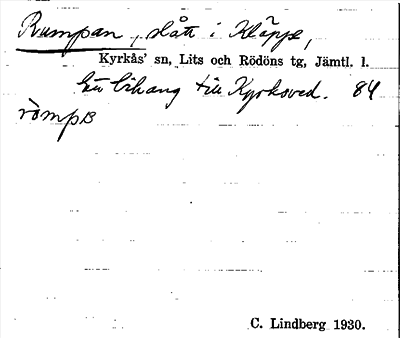 Rumpan, slått i Kläppe,
Kyrkås' sn, Lits och Rödöns tg, Jämtl. l.
bihang till Kyrkoved. 84
ròmpɐ
C. Lindberg 1930.